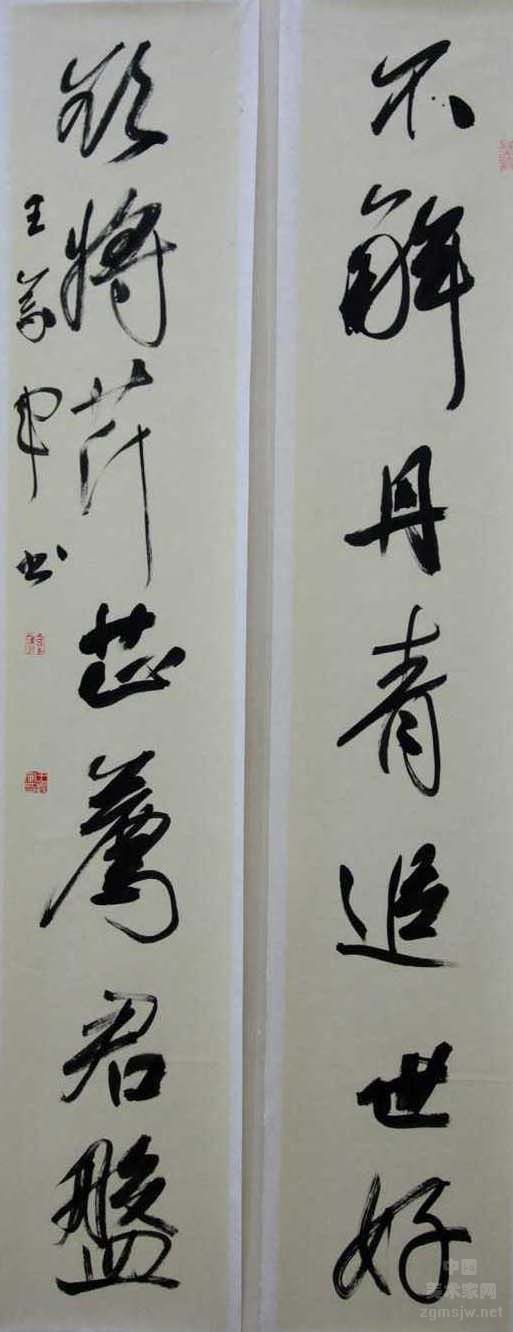 不解丹青追世好
欲将芹芷荐君盤
王萬軍书
中国
美术家网
zgmsjw.net